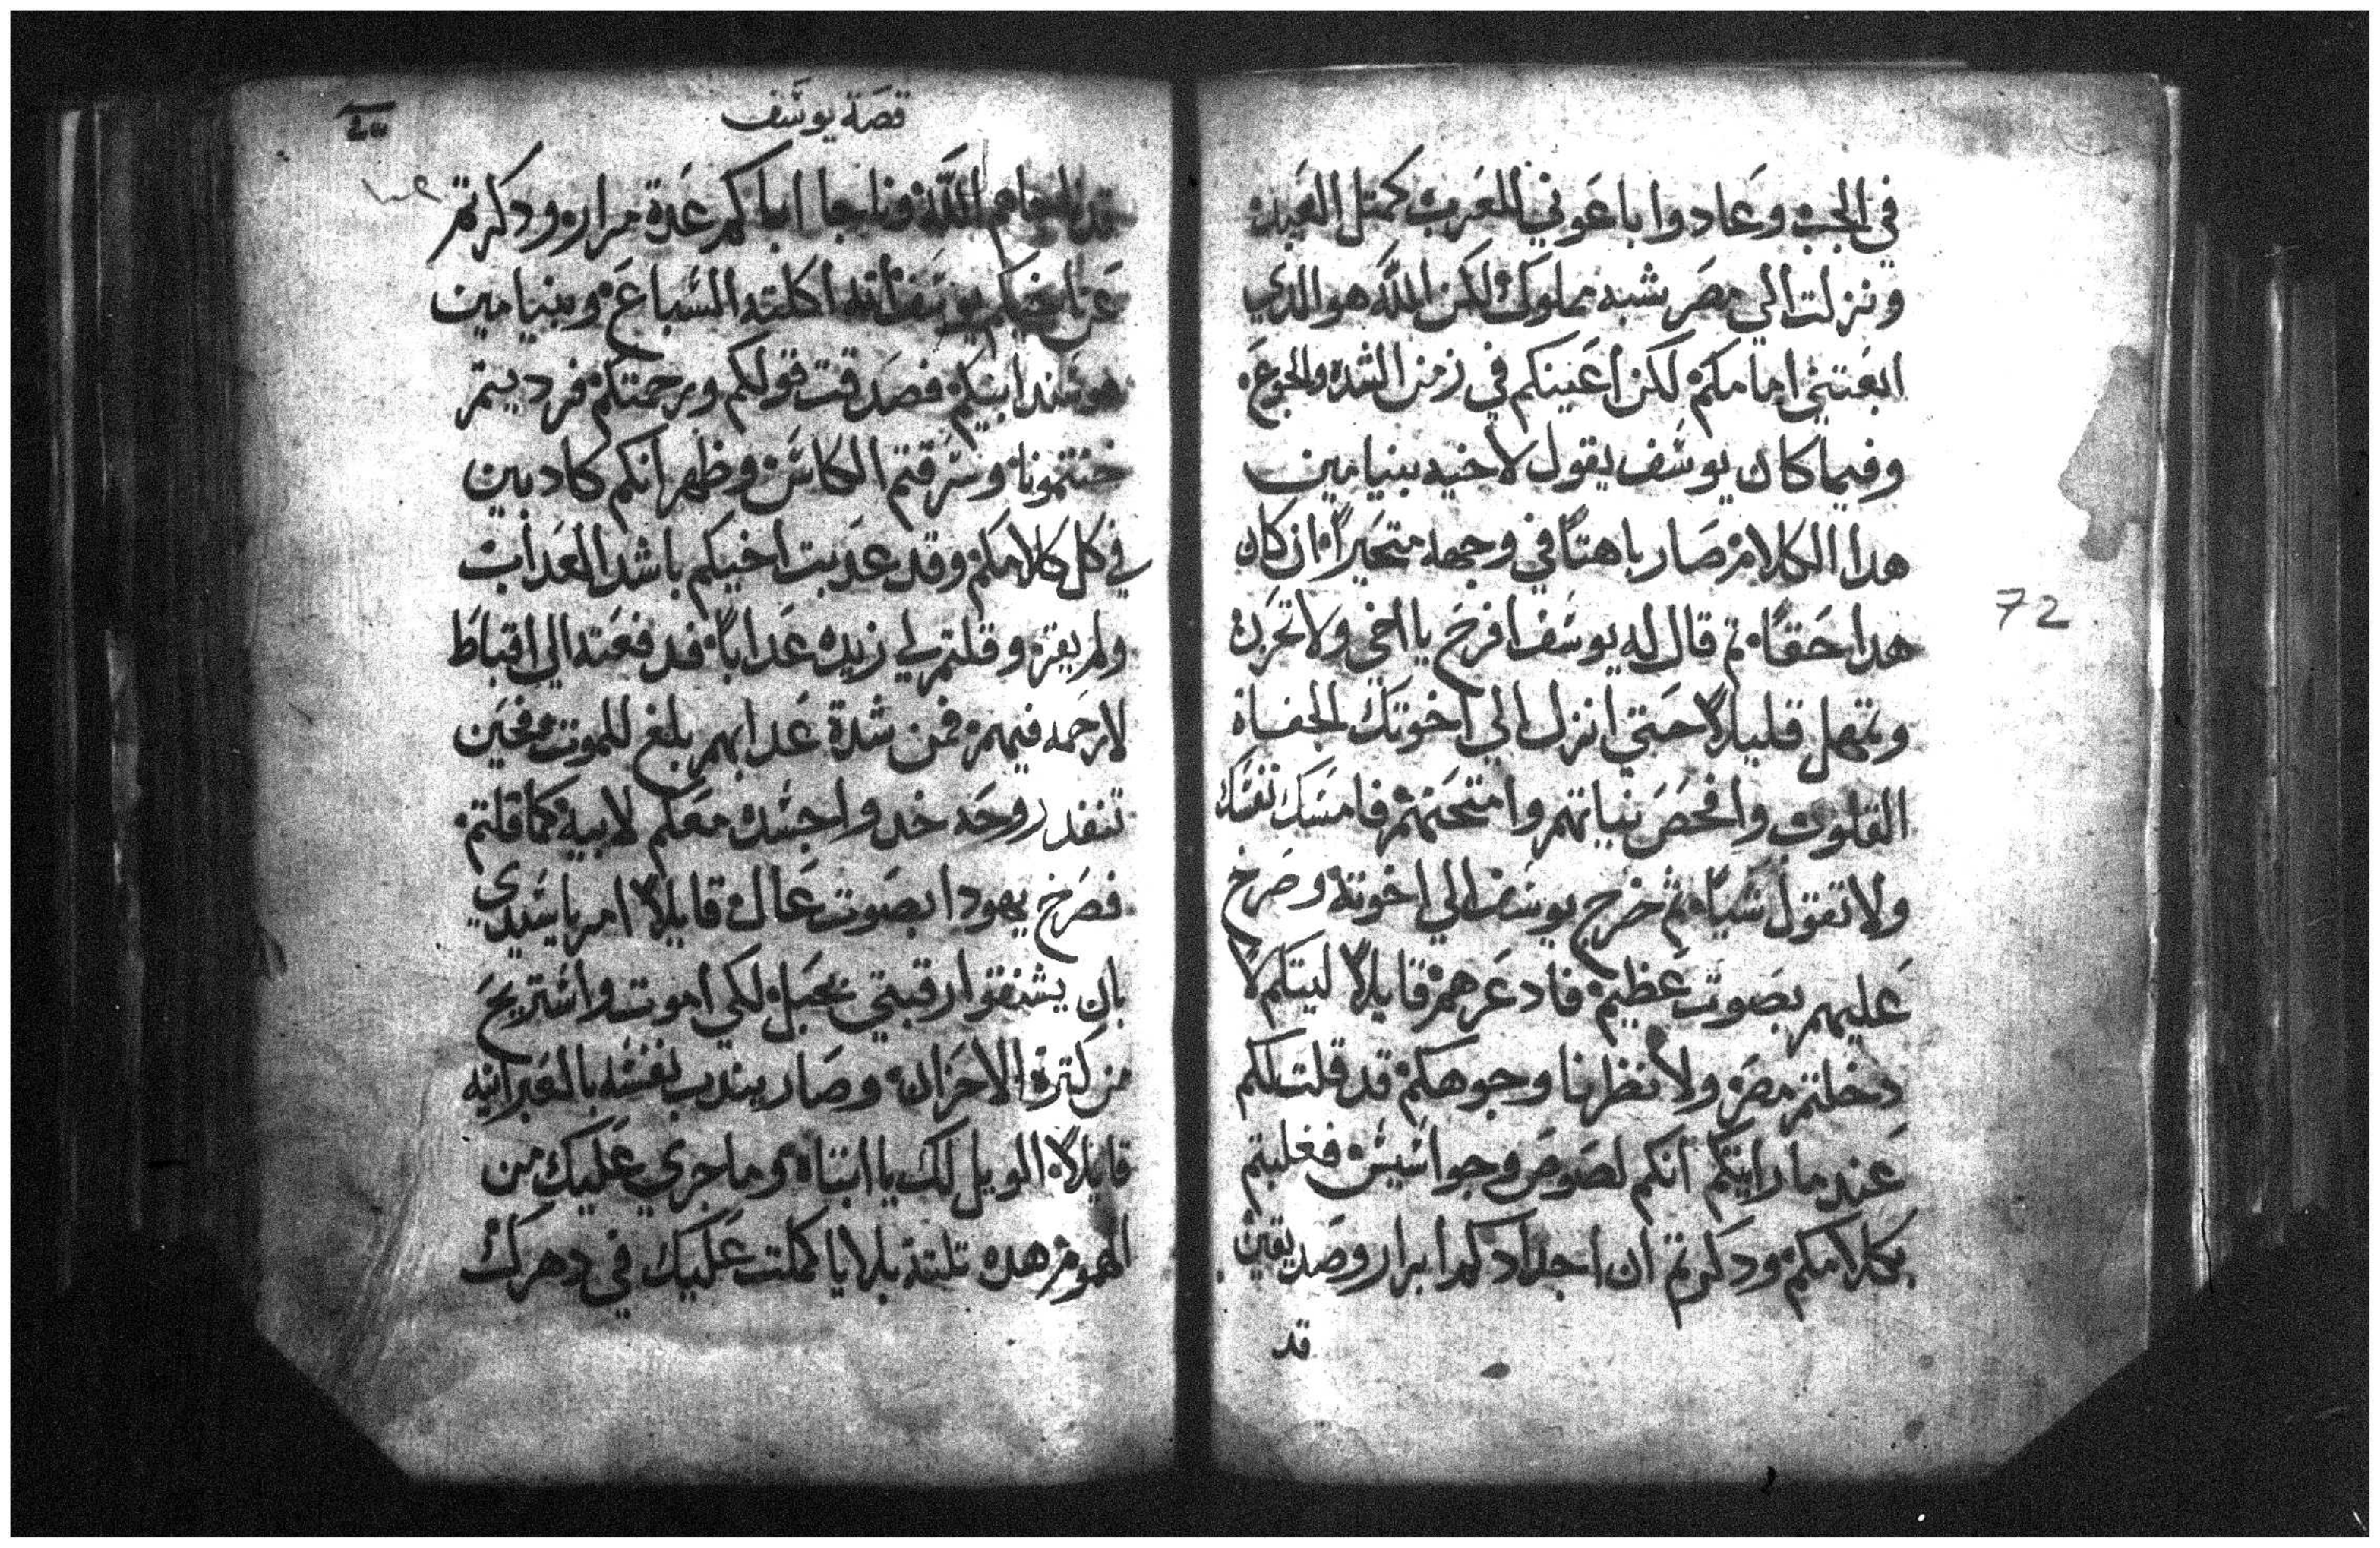 في الجب وعادوا باعوني للعرب كمتل العبيد
ونزلت الي مصر بشبه مملوك لكن الله هو الدي
ابعتني امامكم لكن اعينكم في زمن الشده والجوع
وفيما كان يوسف يقول لاخيه بنيامين
هدا الكلام صار باهتاً في وجهه متحيراً ان كان
هدا حقاً تم قال له يوسف افرح يا اخي ولا تحزن
وتمهل قليلاً حتي انزل الي اخوتك الجفاة
القلوب وافحص نياتهم وامتحنهم فامسك نفسك
ولا تقول شياً ثم خرج يوسف الي اخوته وصرخ
عليهم بصوت عظيم فادعرهم قايلاً ليتكم لا
دخلتم مصر ولا نظرنا وجوهكم قد قلت لكم
عند ما رايتكم انكم لصوص وجواسيس فغلبتم
بكلامكم ودكرتم ان اجدادكم ابرار وصديقين
قد
72
قصة يوسف
الله وناجا اباكم عدة مرار ودكرتم
عن اخيكم يوسف انه اكلته السباع وبنيامين
هو عند ابيكم فصدقت قولكم ورحمتكم فرديتم
خنتمونا وسرقتم الكاس وظهر انكم كادبين
في كل كلامكم وقد عدبت اخيكم باشد العداب
ولم يقر وقلتم لي زيده عداباً فدفعته الي اقباط
لا رحمه فيهم فمن شدة عدابهم بلغ للموت فحين
تنفد روحه خدوا جسده معكم لابيه كما قلتم
فصرخ يهودا بصوت عال قايلاً امر يا سيدي
بان يشنقوا رقبتي بحبل لكي اموت واستريح
من كترة الاحزان وصار يندب نفسه بالعبرانيه
قايلاً الويل لك يا ابتاه وما جري عليك من
الهموم هده تلتة بلايا كملت عليك في دهرك